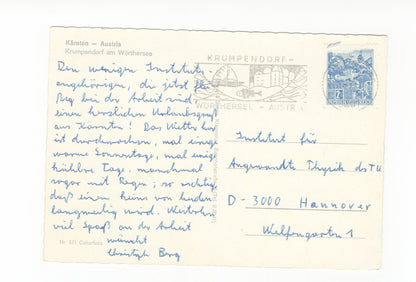 Kärnten – Austria
Krumpendorf am Wörthersee
Den wenigen Instituts-
angehörigen, die jetzt flei-
ßig bei der Arbeit sind
einen herzlichen Urlaubsgruß
aus Kärnten! Das Wetter hier
ist durchwachsen, mal einige
warme Sonnentage, mal einige
kühlere Tage, manchmal
sogar mit Regen; so richtig,
daß einem hier von beidem
langweilig wird. Weiterhin
viel Spaß an der Arbeit
wünscht
Christoph Berg
Nr. 571 Colorfoto
KRUMPENDORF -
WÖRTHERSEE - AUSTRIA
REPUBLIK ÖSTERREICH
Institut für
Angewandte Physik der TU
D - 3000 Hannover
Welfengarten 1